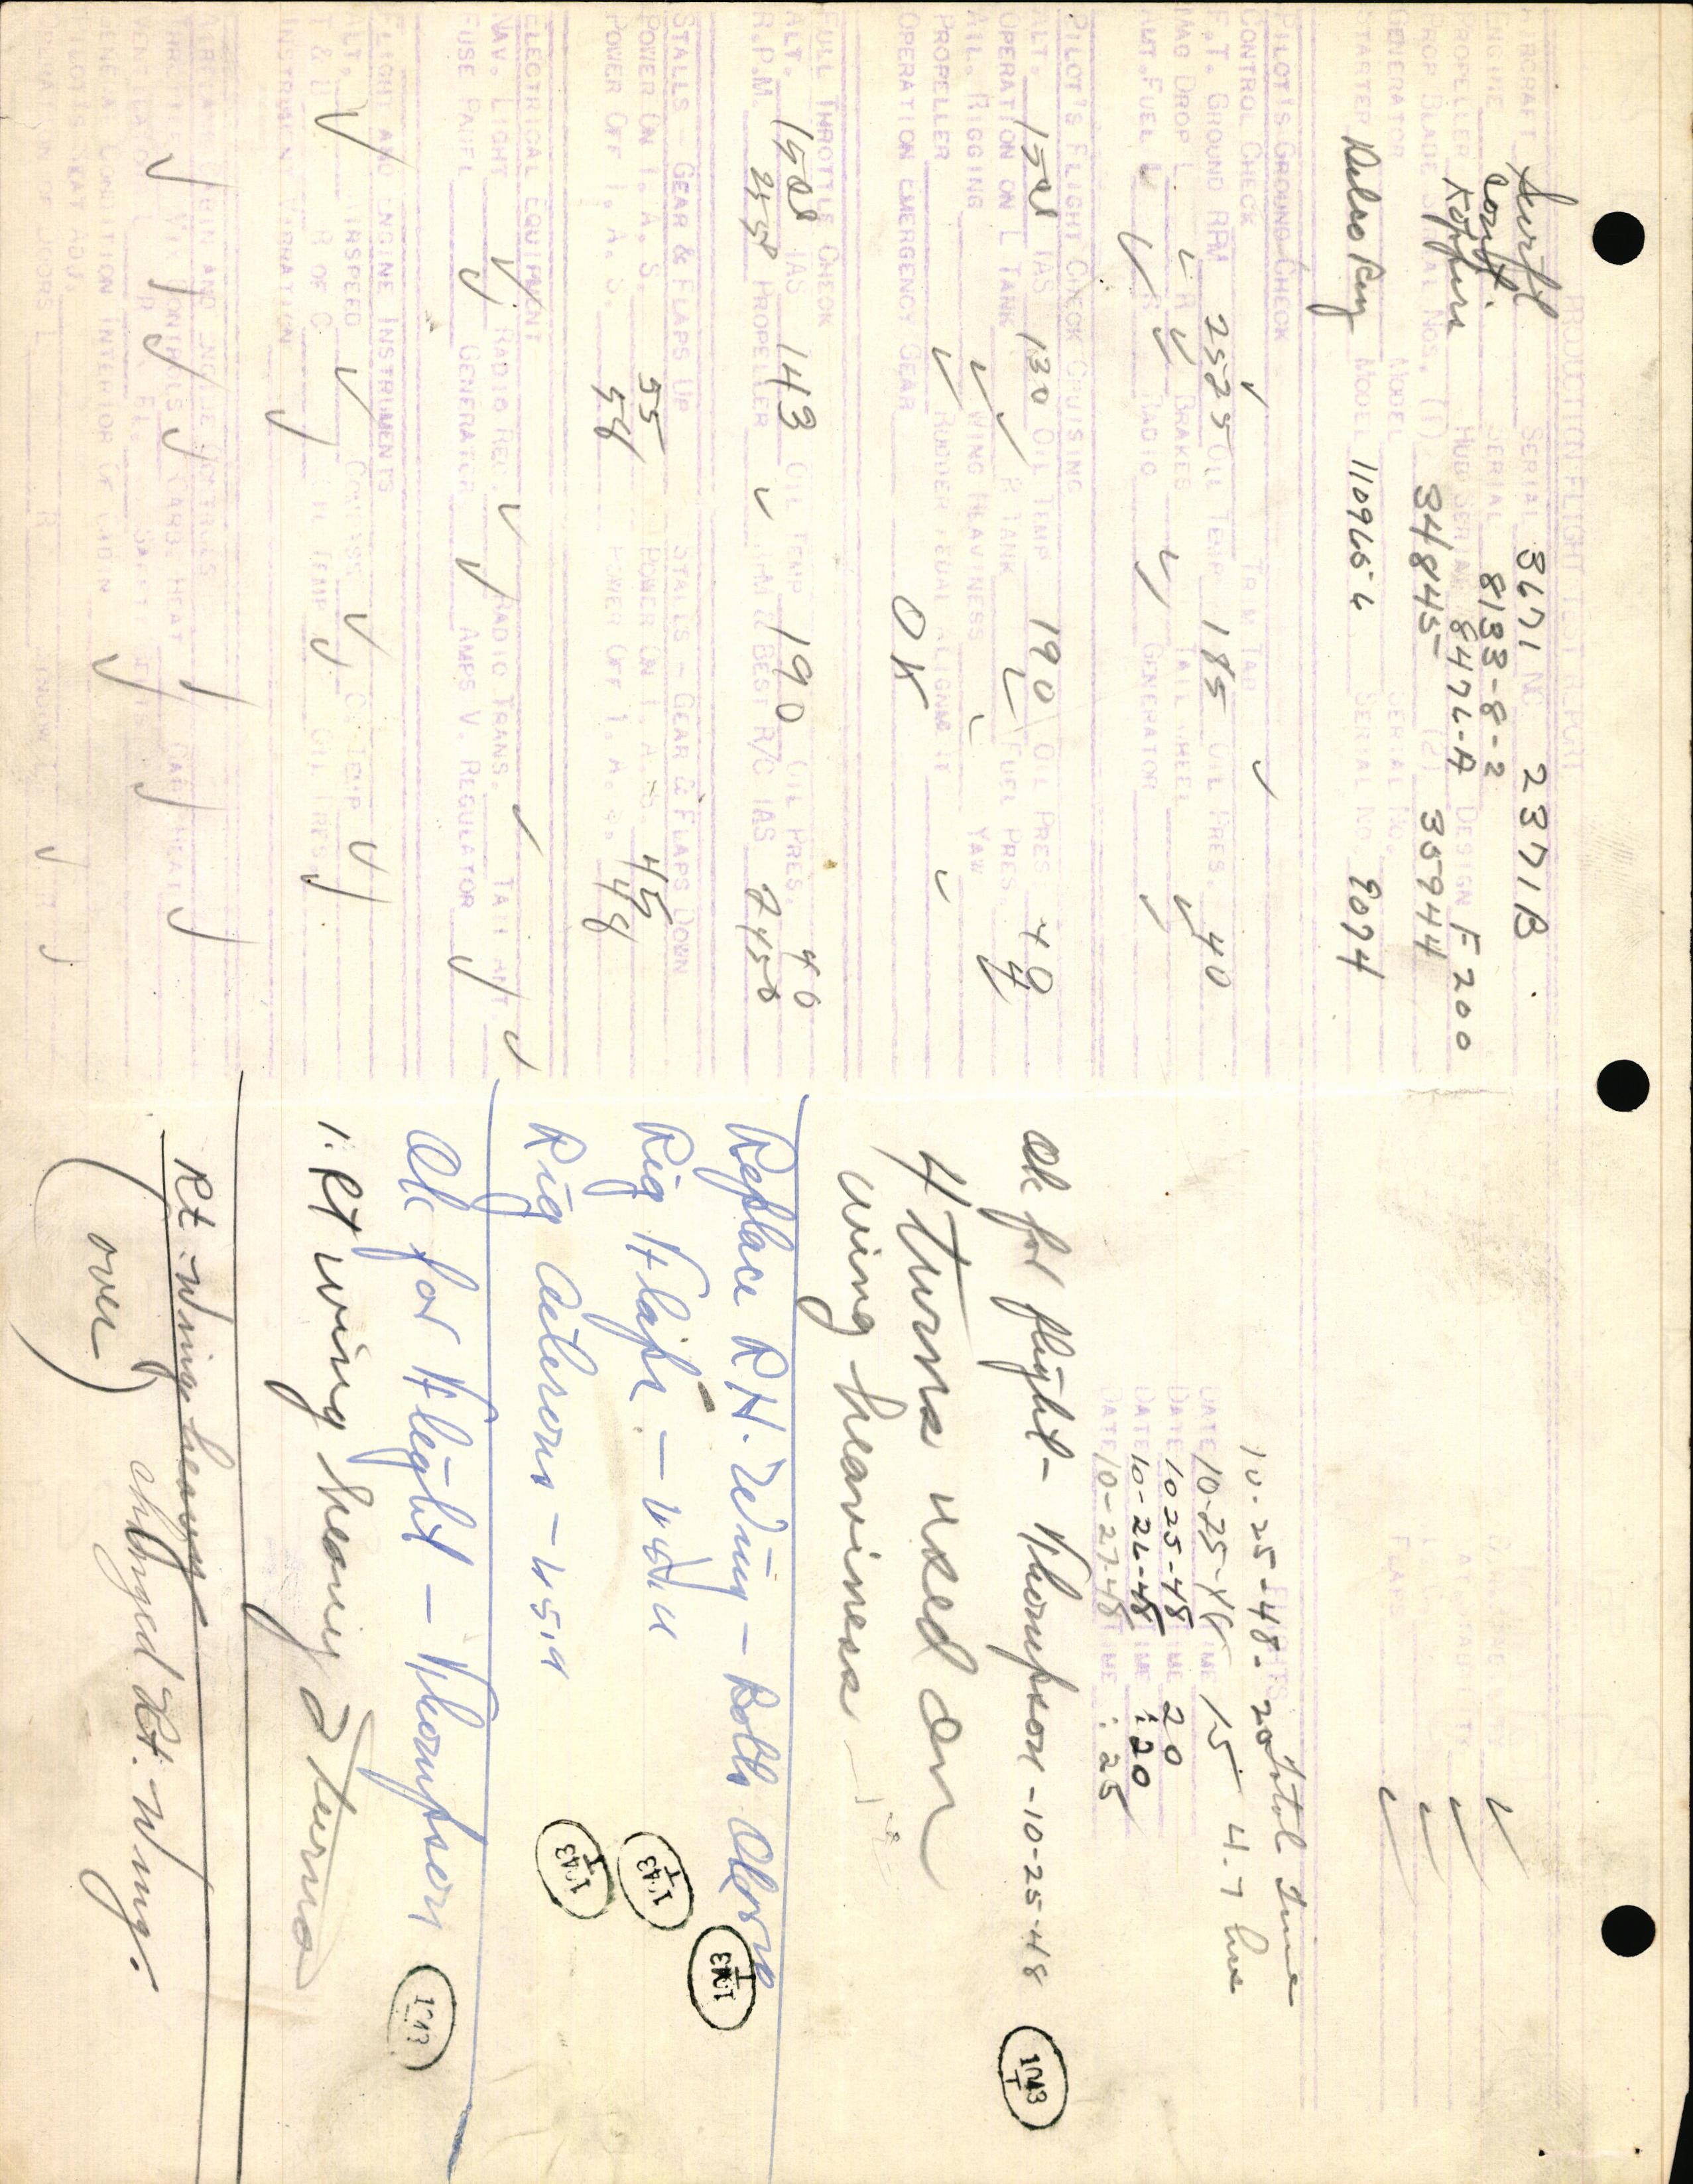 PRODUCTION FLIGHT TEST REPORT
AIRCRAFT Swift SERIAL 3671 NC 2371B
ENGINE Cont. SERIAL 8133-8-2
PROPELLER Koppers HUB SERIAL 8476-A DESIGN F200
PROP BLADE SERIAL NOS. (1) 34845 (2) 35944
GENERATOR MODEL SERIAL NO.
STARTER Delco Remy MODEL 1109656 SERIAL NO. 9074
PILOT'S GROUND CHECK
CONTROL CHECK ✓ TRIM TAB ✓
E.T. GROUND RPM 2525 OIL TEMP 185 OIL PRES. 40
MAG DROP L ✓ R ✓ BRAKES ✓ TAIL WHEEL ✓
AMT. FUEL L ✓ R RADIO GENERATOR ✓
PILOT'S FLIGHT CHECK CRUISING
ALT. 1500 IAS 130 OIL TEMP 190 OIL PRES 40
OPERATION ON L TANK ✓ R TANK ✓ FUEL PRES. 4
AIL. RIGGING ✓ WING HEAVINESS ✓ YAW
PROPELLER ✓ RUDDER PEDAL ALIGNMENT ✓
OPERATION EMERGENCY GEAR OK
FULL THROTTLE CHECK
ALT. 1500 IAS 143 OIL TEMP 190 OIL PRES. 40
R.P.M. 2550 PROPELLER ✓ BEST R/C IAS 2450
STALLS - GEAR & FLAPS UP STALLS - GEAR & FLAPS DOWN
POWER ON I. A. S. 55 POWER ON I. A. S. 45
POWER OFF I. A. S. 56 POWER OFF I. A. S. 48
ELECTRICAL EQUIPMENT
NAV. LIGHT ✓ RADIO REC. ✓ RADIO TRANS. ✓ TAIL ANT ✓
FUSE PANEL ✓ GENERATOR ✓ AMPS V. REGULATOR ✓
FLIGHT AND ENGINE INSTRUMENTS
ALT. ✓ AIRSPEED ✓ COMPASS ✓ C. TEMP ✓
T & B ✓ R OF C OIL TEMP ✓ OIL PRES. ✓
INSTRUMENT VIBRATION ✓
AIRPLANE CABIN AND ENGINE CONTROLS
THROTTLE ✓ MIX CONTROLS ✓ CARB. HEAT ✓ CABIN HEAT ✓
GENERAL CONDITION INTERIOR OF CABIN ✓
PILOT'S SEAT ADJ.
OPERATION OF DOORS L R WINDOW L ✓ R ✓
FLAPS ✓
FLIGHTS
10-25-48- 20 total time
DATE 10-25-48 TIME 15 4.7 hrs
DATE 10-25-48 TIME 20
DATE 10-26-48 TIME :20
DATE 10-27-48 TIME :25
Ok for flight - Thompson -10-25-48 1043 T
4 turns used on
wing heaviness
Replace R.H. Wing - Bolts
Rig Flaps -
Rig Ailerons -
1043 T
1043 T
1043 T
Ok for Flight - Thompson 1043
1. Rt wing heavy 2 turns
Rt. Wing heavy
changed Rt. Wing.
(over)